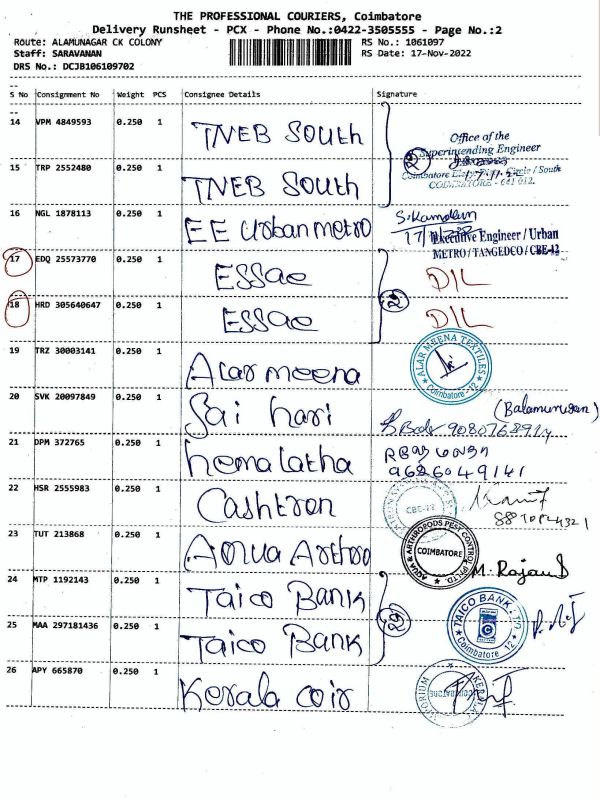 THE PROFESSIONAL COURIERS, Coimbatore
Delivery Runsheet - PCX - Phone No.:0422-3505555 - Page No.:2
Route: ALAMUNAGAR CK COLONY RS No.: 1061097
Staff: SARAVANAN RS Date: 17-Nov-2022
DRS No.: DCJB106109702
S No Consignment No Weight PCS Consignee Details Signature
14 VPM 4849593 0.250 1 TNEB South
Office of the
Superintending Engineer
15 TRP 2552480 0.250 1 TNEB South 2
Circle / South
COIMBATORE - 641 012.
16 NGL 1878113 0.250 1 EE Urban metro
Executive Engineer / Urban
METRO / TANGEDCO / CBE-12
17 EDQ 25573770 0.250 1 ESSae DIL
18 HRD 305640647 0.250 1 ESSae 2 DIL
19 TRZ 30003141 0.250 1 Alar meena
ALAR MEENA TEXTILES
Coimbatore - 12
20 SVK 20097849 0.250 1 Sai hari (Balamurugan)
21 DPM 372765 0.250 1 hemalatha
9626049141
22 HSR 2555983 0.250 1 Cashtron
CBE-12
23 TUT 213868 0.250 1 Aqua Arthro
AQUA & ARTHROPODS PEST CONTROL (P) LTD.
COIMBATORE
M. Rajan
24 MTP 1192143 0.250 1 Taico Bank
TAICO BANK LTD
Coimbatore - 12
25 MAA 297181436 0.250 1 Taico Bank
26 APY 665870 0.250 1 Kerala coir